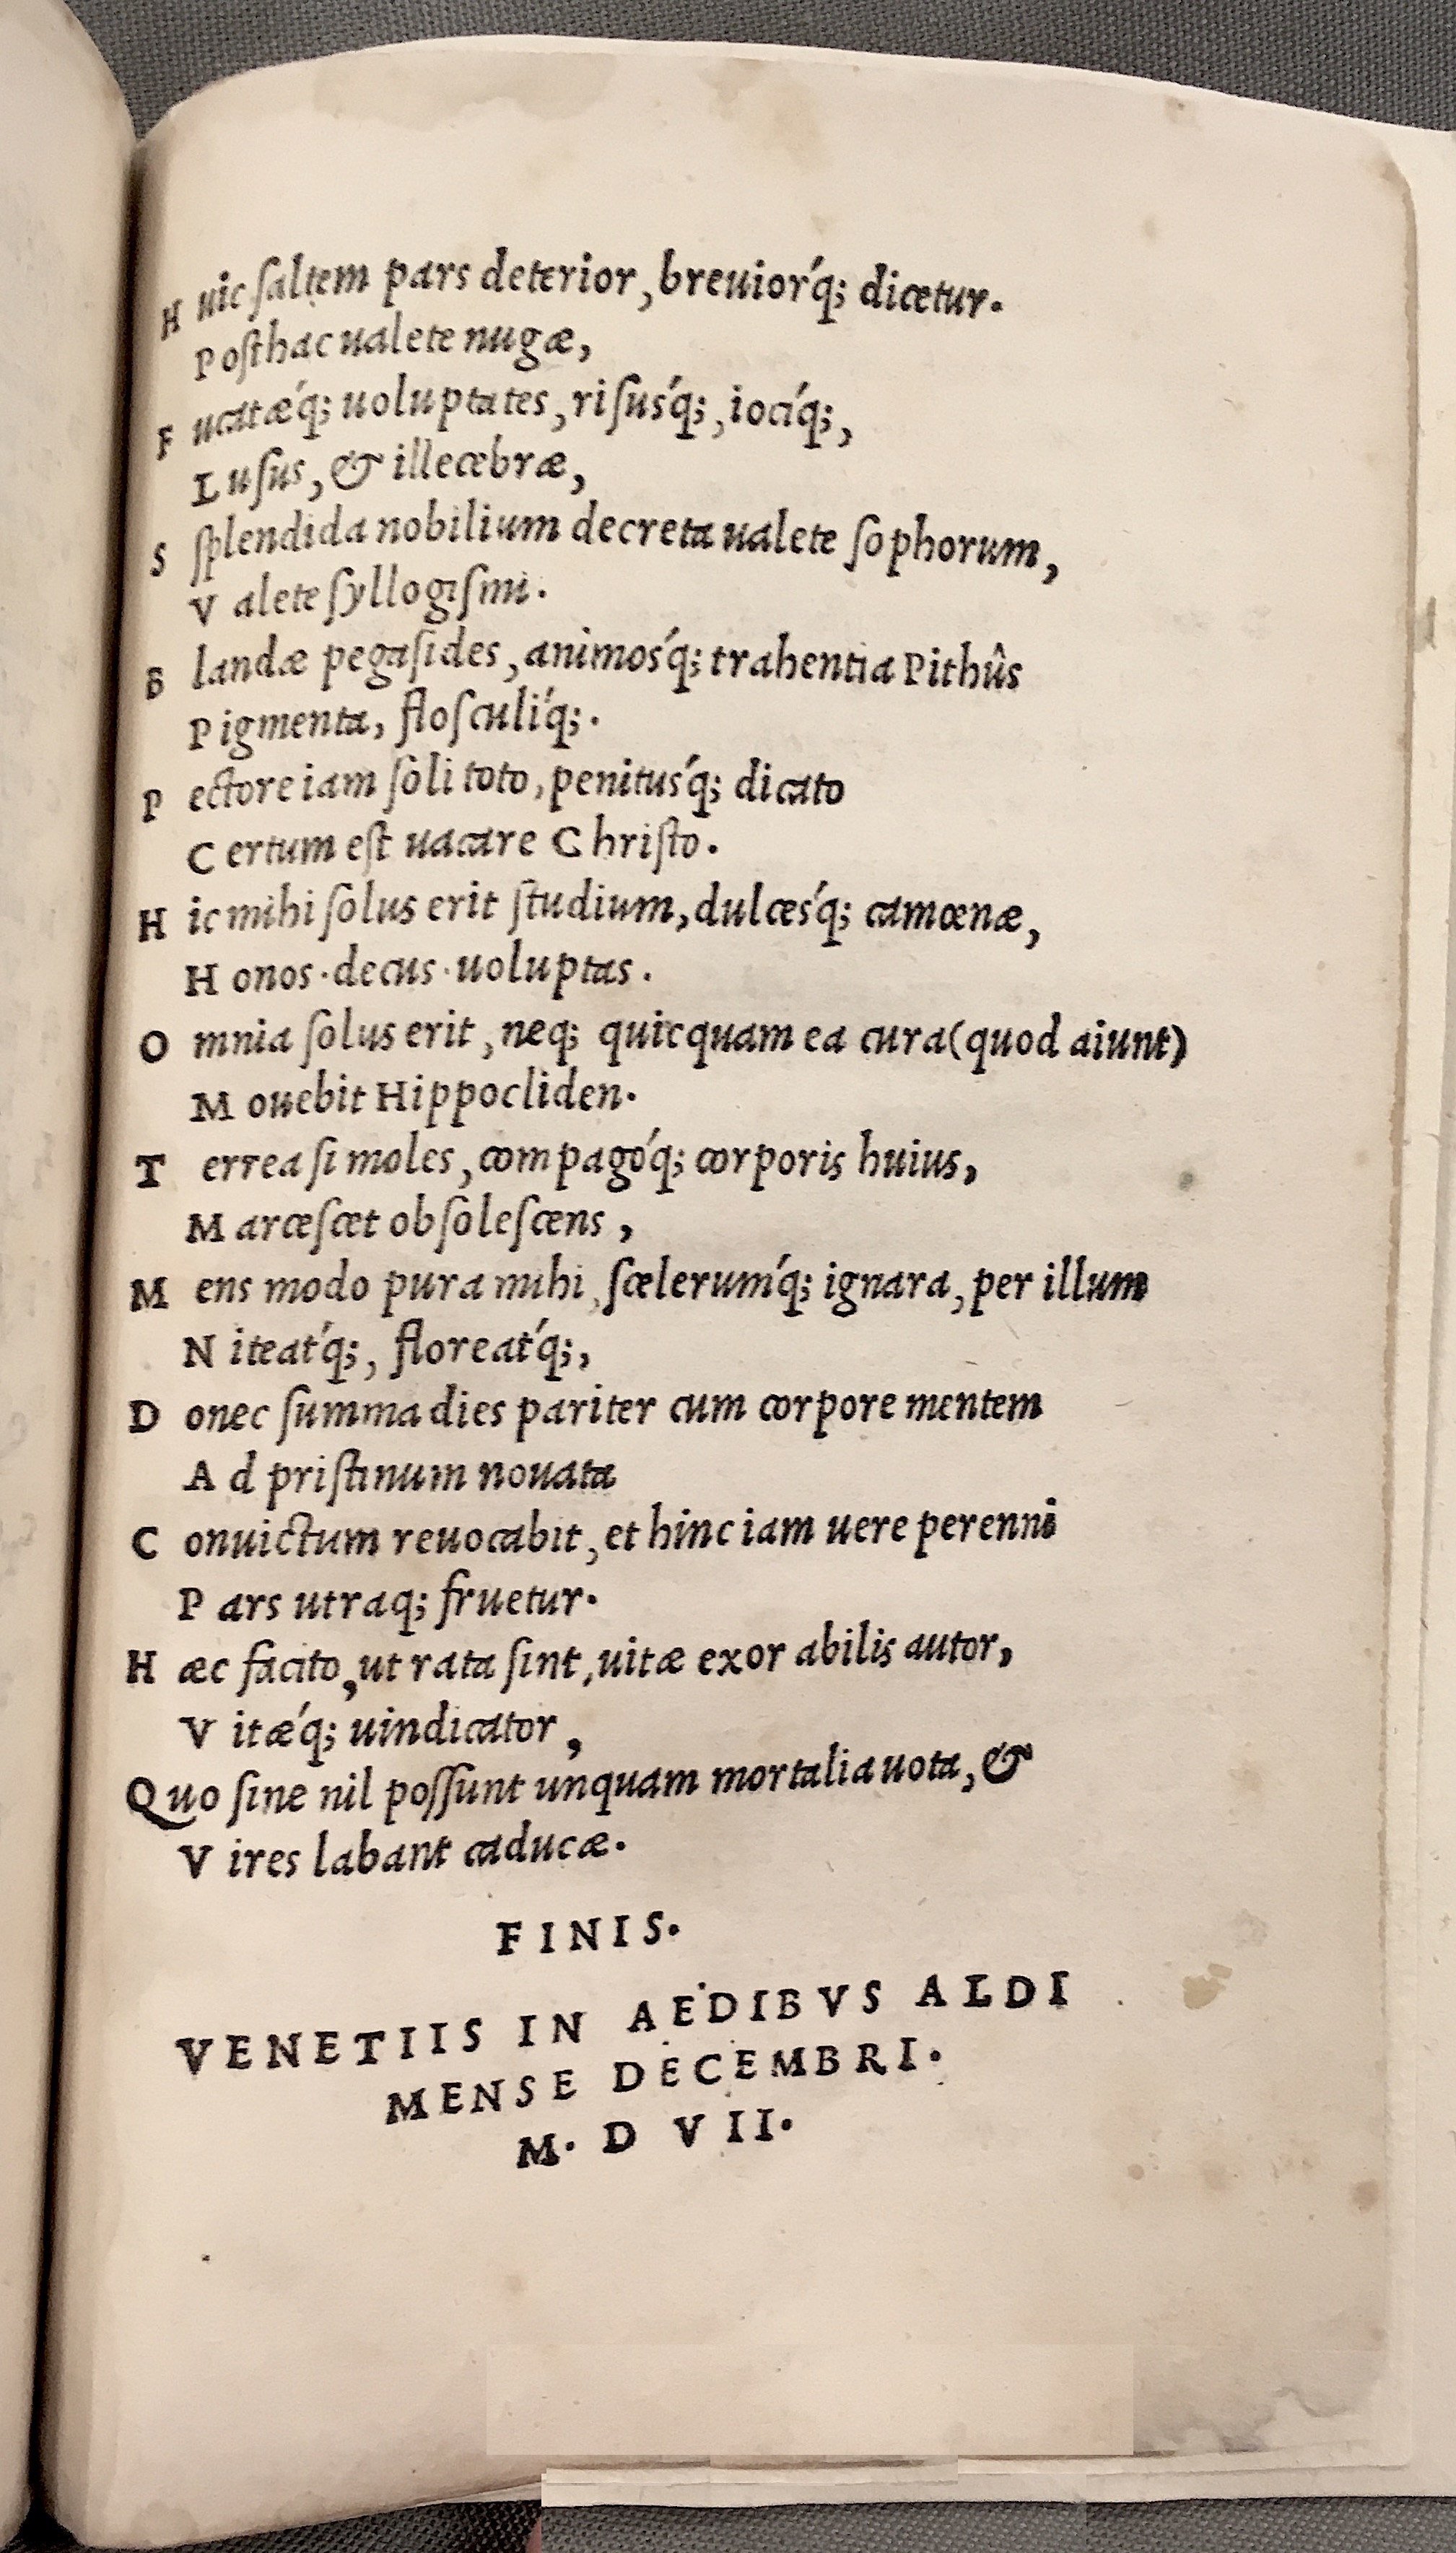 H uic ſaltem pars deterior, breuior'q; dicetur.
P oſthac ualete nugæ,
F ucatæ'q; uoluptates, riſus'q;, ioci'q;,
L uſus, & illecebræ,
S ſplendida nobilium decreta ualete ſophorum,
V alete ſyllogiſmi.
B landæ pegaſides, animos'q; trahentia Pithûs
P igmenta, floſculi'q;.
P ectore iam ſoli toto, penitus'q; dicato
C ertum eſt uacare Chriſto.
H ic mihi ſolus erit ſtudium, dulces'q; camœnæ,
H onos·decus·uoluptas.
O mnia ſolus erit, neq; quicquam ea cura (quod aiunt)
M ouebit Hippocliden.
T errea ſi moles, compago'q; corporis huius,
M arceſcet obſoleſcens,
M ens modo pura mihi, ſcelerum'q; ignara, per illum
N iteat'q;, floreat'q;,
D onec ſumma dies pariter cum corpore mentem
A d priſtinum nouata
C onuictum reuocabit, et hinc iam uere perenni
P ars utraq; fruetur.
H æc facito, ut rata ſint, uitæ exorabilis autor,
V itæ'q; uindicator,
Quo ſine nil poſſunt unquam mortalia uota, &
V ires labant caducæ.
FINIS.
VENETIIS IN AEDIBVS ALDI
MENSE DECEMBRI.
M. D VII.